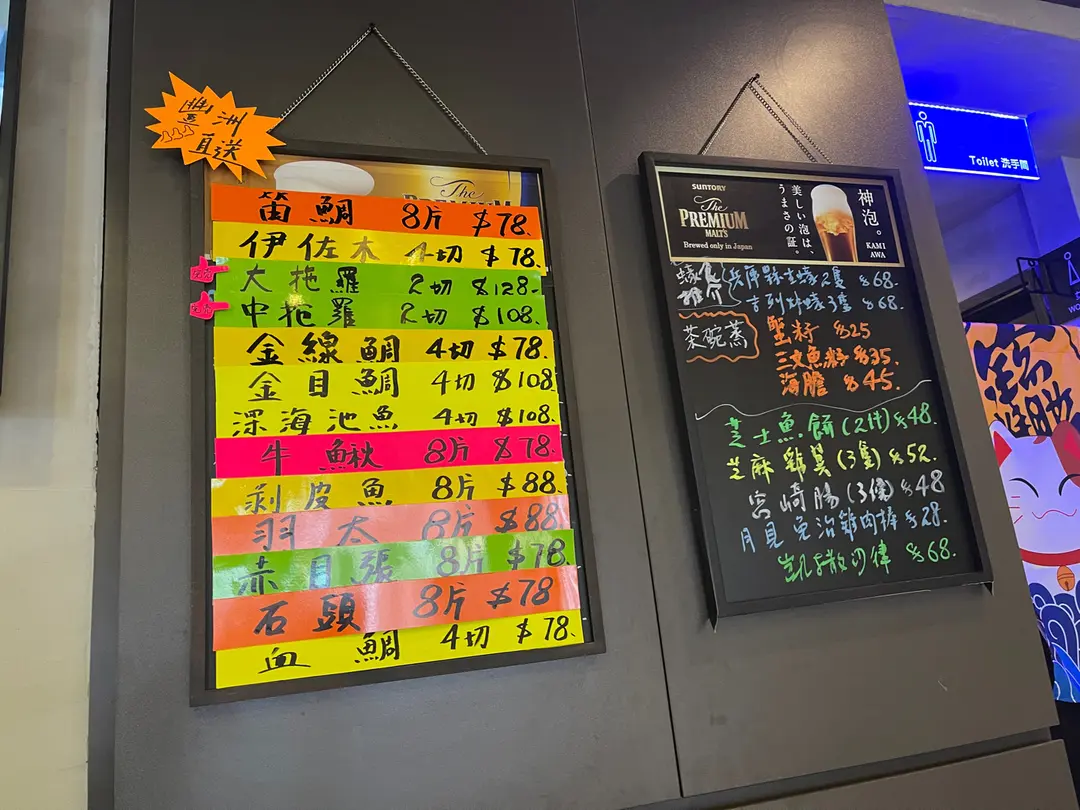 豐洲
直送
The
PREMIUM
笛鯛 8片 $78.
伊佐木 4切 $78.
大拖羅 2切 $128.
中拖羅 2切 $108.
金線鯛 4切 $78.
金目鯛 4切 $108
深海池魚 4切 $108.
牛鰍 8片 $78.
剥皮魚 8片 $88.
羽太 8片 $88
赤目張 8片 $78.
石頭 8片 $78
血鯛 4切 $78.
SUNTORY
The
PREMIUM
MALT'S
Brewed only in Japan
美しい泡は、
うまさの証。
神泡。
KAMI
AWA
推介
兵庫縣生蠔2隻 $68.
吉列炸蠔3隻 $68.
茶碗蒸
蟹籽 $25
三文魚籽 $35.
海膽 $45.
芝士魚餅(2件) $48.
芝麻雞翼(3隻) $52.
宮崎腸(3條) $48
月見免治雞肉棒 $28.
凱撒沙律 $68.
Toilet 洗手間